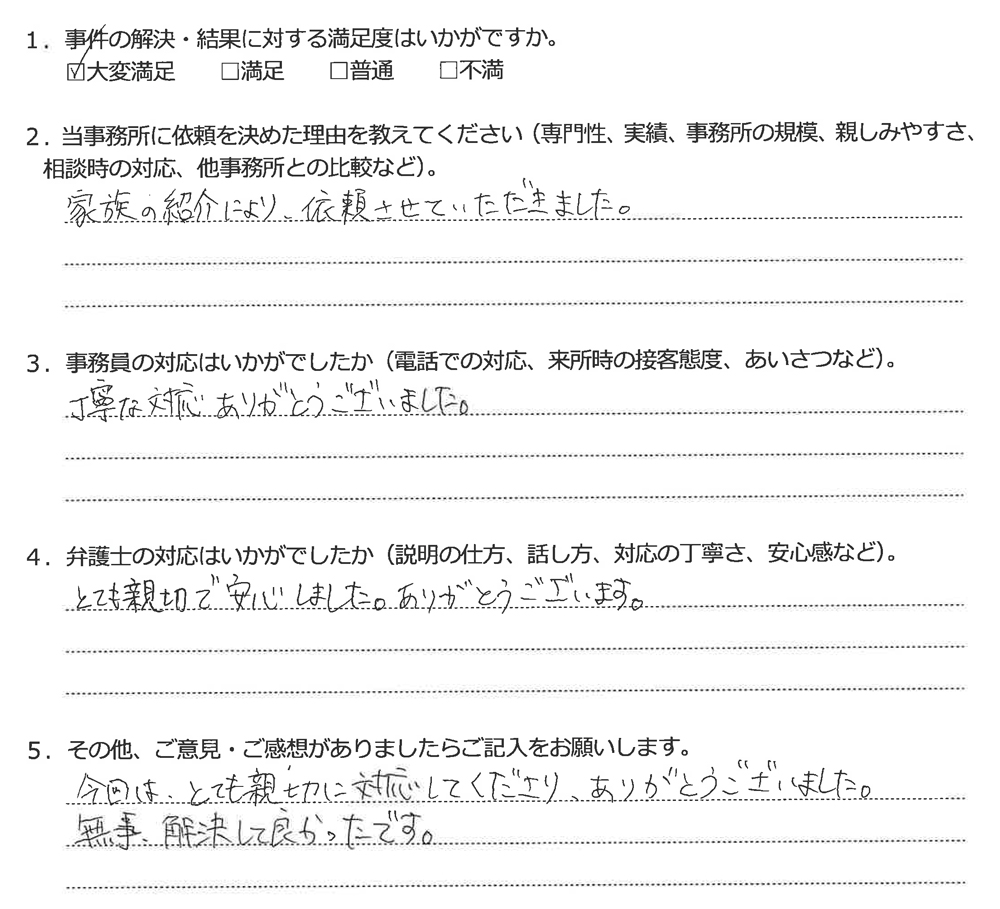 1．事件の解決・結果に対する満足度はいかがですか。
☑大変満足　　□満足　　□普通　　□不満
2．当事務所に依頼を決めた理由を教えてください（専門性、実績、事務所の規模、親しみやすさ、
相談時の対応、他事務所との比較など）。
家族の紹介により、依頼させていただきました。
3．事務員の対応はいかがでしたか（電話での対応、来所時の接客態度、あいさつなど）。
丁寧な対応ありがとうございました。
4．弁護士の対応はいかがでしたか（説明の仕方、話し方、対応の丁寧さ、安心感など）。
とても親切で安心しました。ありがとうございます。
5．その他、ご意見・ご感想がありましたらご記入をお願いします。
今回は、とても親切に対応してくださり、ありがとうございました。
無事、解決して良かったです。